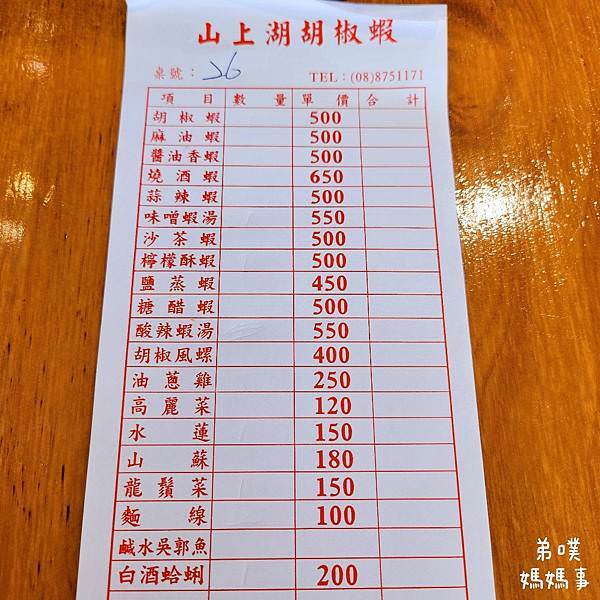 山上湖胡椒蝦
桌號： 26 TEL：(08)8751171
項目 數量 單價 合計
胡椒蝦 500
麻油蝦 500
醬油香蝦 500
燒酒蝦 650
蒜辣蝦 500
味噌蝦湯 550
沙茶蝦 500
檸檬酥蝦 500
鹽蒸蝦 450
糖醋蝦 500
酸辣蝦湯 550
胡椒風螺 400
油蔥雞 250
高麗菜 120
水蓮 150
山蘇 180
龍鬚菜 150
麵線 100
鹹水吳郭魚
白酒蛤蜊 200
弟噗
媽媽事